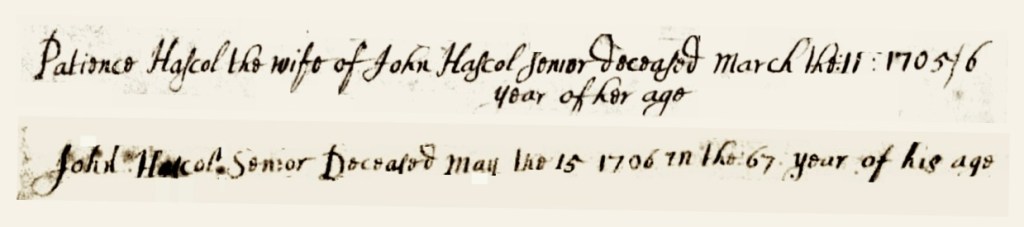 Patience Haſcol the wife of John Haſcol ſenior deceaſed march the: 11: 1705/6
year of her age
John Hascol: Senior Deceaſed may the 15 1706 in the: 67 year of his age